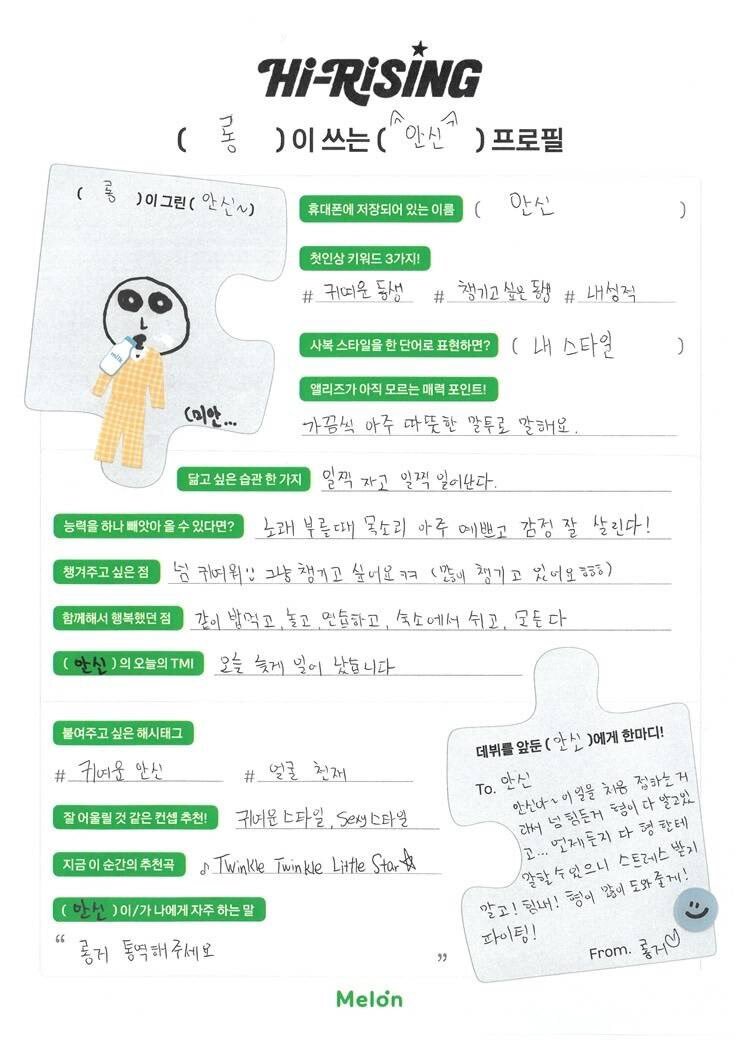 Hi-RiSING
( 롱 ) 이 쓰는 ( ^안신^ ) 프로필
( 롱 )이 그린( 안신~)
milk
(미안...
휴대폰에 저장되어 있는 이름 ( 안신 )
첫인상 키워드 3가지!
# 귀여운 동생 # 챙기고 싶은 동생 # 내성적
사복 스타일을 한 단어로 표현하면? ( 내 스타일 )
앨리즈가 아직 모르는 매력 포인트!
가끔씩 아주 따뜻한 말투로 말해요.
닮고 싶은 습관 한 가지 일찍 자고 일찍 일어난다.
능력을 하나 빼앗아 올 수 있다면? 노래 부를때 목소리 아주 예쁘고 감정 잘 살린다!
챙겨주고 싶은 점 넘 귀여워!! 그냥 챙기고 싶어요 ㅋㅋ (많이 챙기고 있어요 ㅎㅎㅎ)
함께해서 행복했던 점 같이 밥먹고, 놀고, 연습하고, 숙소에서 쉬고, 모든다
( 안신 )의 오늘의 TMI 오늘 늦게 일어 났습니다
붙여주고 싶은 해시태그
# 귀여운 안신 # 얼굴 천재
잘 어울릴 것 같은 컨셉 추천! 귀여운 스타일, Sexy 스타일
지금 이 순간의 추천곡 ♪ Twinkle Twinkle Little Star☆
( 안신 )이/가 나에게 자주 하는 말
“ 롱거 통역해주세요 ”
데뷔를 앞둔( 안신 )에게 한마디!
To. 안신
안신아~ 이 일을 처음 접하는 거
라서 넘 힘든거 형이 다 알고있
고... 언제든지 다 형한테
말할 수 있으니 스트레스 받지
말고! 힘내! 형이 많이 도와줄게!
파이팅!
From. 롱거♡
Melon